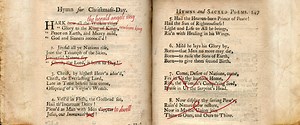 Hymn for Christmas-Day.
the herald angels sing
HARK how all the Welkin rings
"Glory to the King of Kings,
"Peace on Earth, and Mercy mild,
"God and Sinners reconcil'd!
2. Joyful all ye Nations rise,
Join the Triumph of the Skies,
Universal Nature say
3. Christ, by highest Heav'n ador'd,
Christ, the Everlasting Lord,
Late in Time behold him come,
Offspring of a Virgin's Womb.
4. Veil'd in Flesh, the Godhead see,
Hail th' Incarnate Deity!
Pleas'd as Man with Men
to dwell
Jesus, our Immanuel
HYMNS and SACRED POEMS.
5. Hail the Heavenly Prince of Peace!
Hail the Sun of Righteousness!
Light and Life to all he brings,
Ris'n with Healing in his Wings.
6. Mild he lays his Glory by,
Born—that Man no more may die,
Born—to raise the Sons of Earth,
Born—to give them second Birth.
7. Come, Desire of Nations, come,
Fix in Us thy humble Home,
Rise, the Woman's Conqu'ring Seed,
Bruise in Us the Serpent's Head.
8. Now display thy saving Pow'r,
Ruin'd Nature now restore,
Now in Mystic Union join
Thine to Ours, and Ours to Thine.